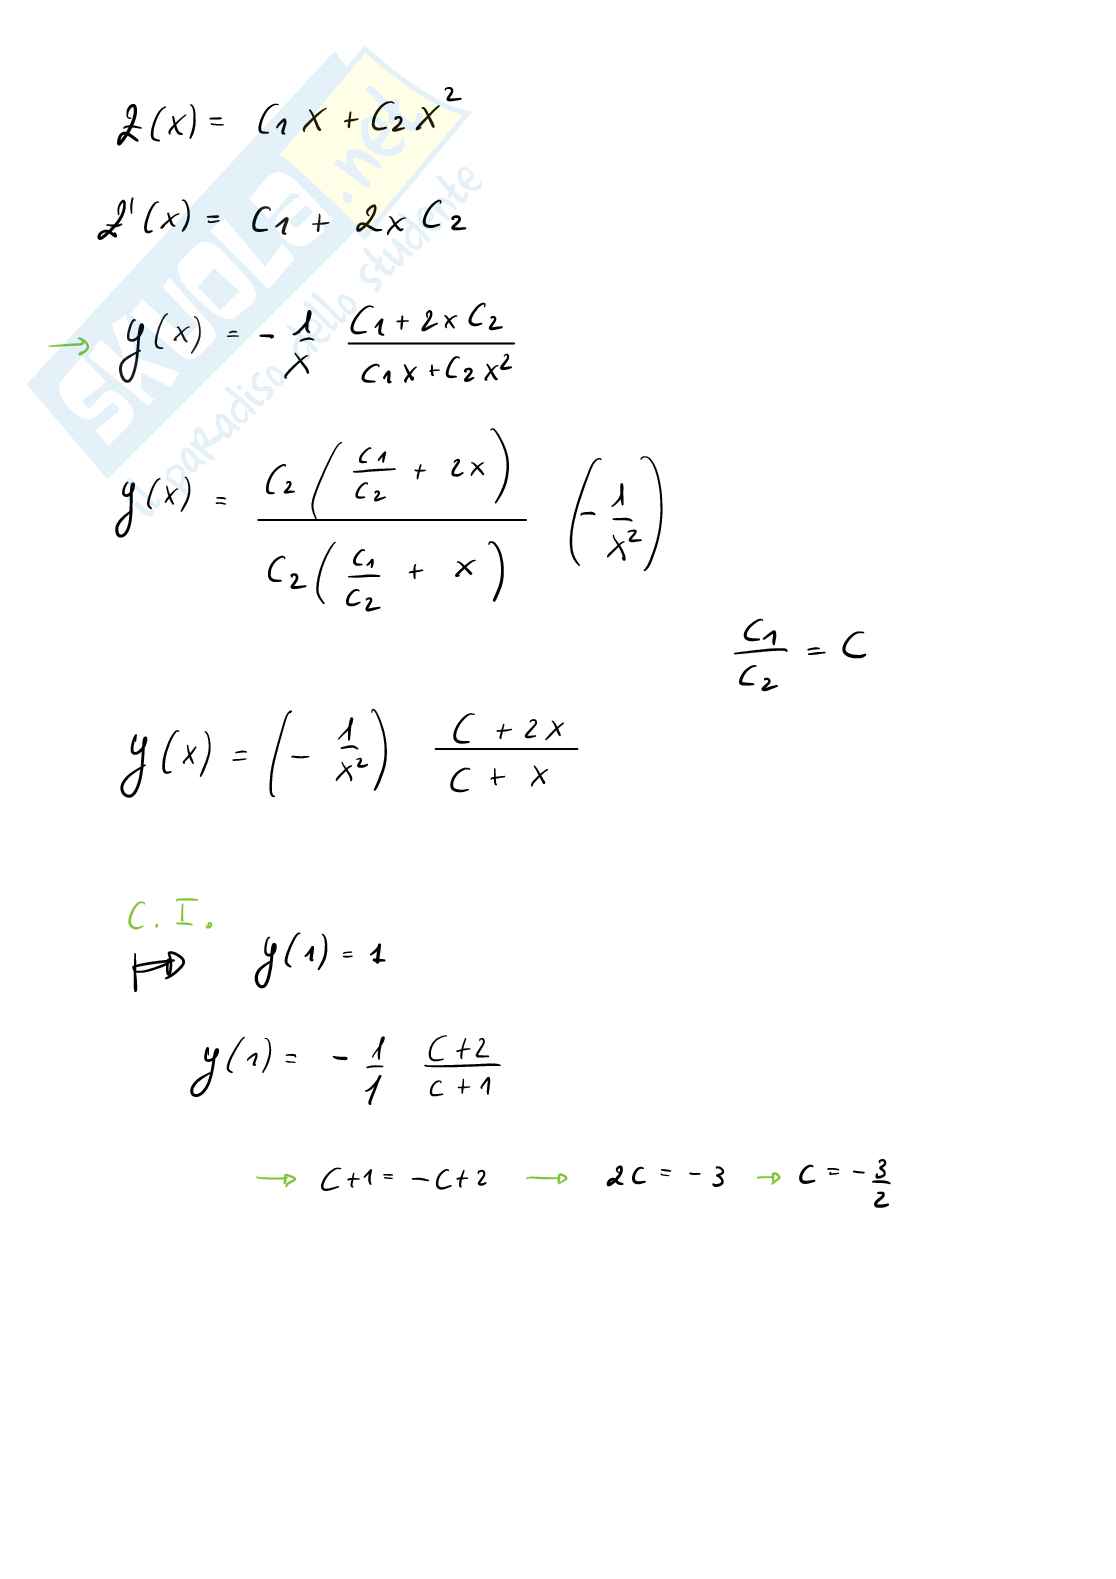 z(x) = C1 x + C2 x²
z'(x) = C1 + 2x C2
→ y(x) = - 1/x (C1 + 2x C2)/(C1 x + C2 x²)
y(x) = C2 (C1/C2 + 2x) / C2 (C1/C2 + x) (- 1/x²)
C1/C2 = C
y(x) = (- 1/x²) (C + 2x)/(C + x)
C.I.
y(1) = 1
y(1) = - 1/1 (C+2)/(C+1)
→ C+1 = -C+2 → 2C = -3 → C = - 3/2
SKUOLA.net
il paradiso dello studente